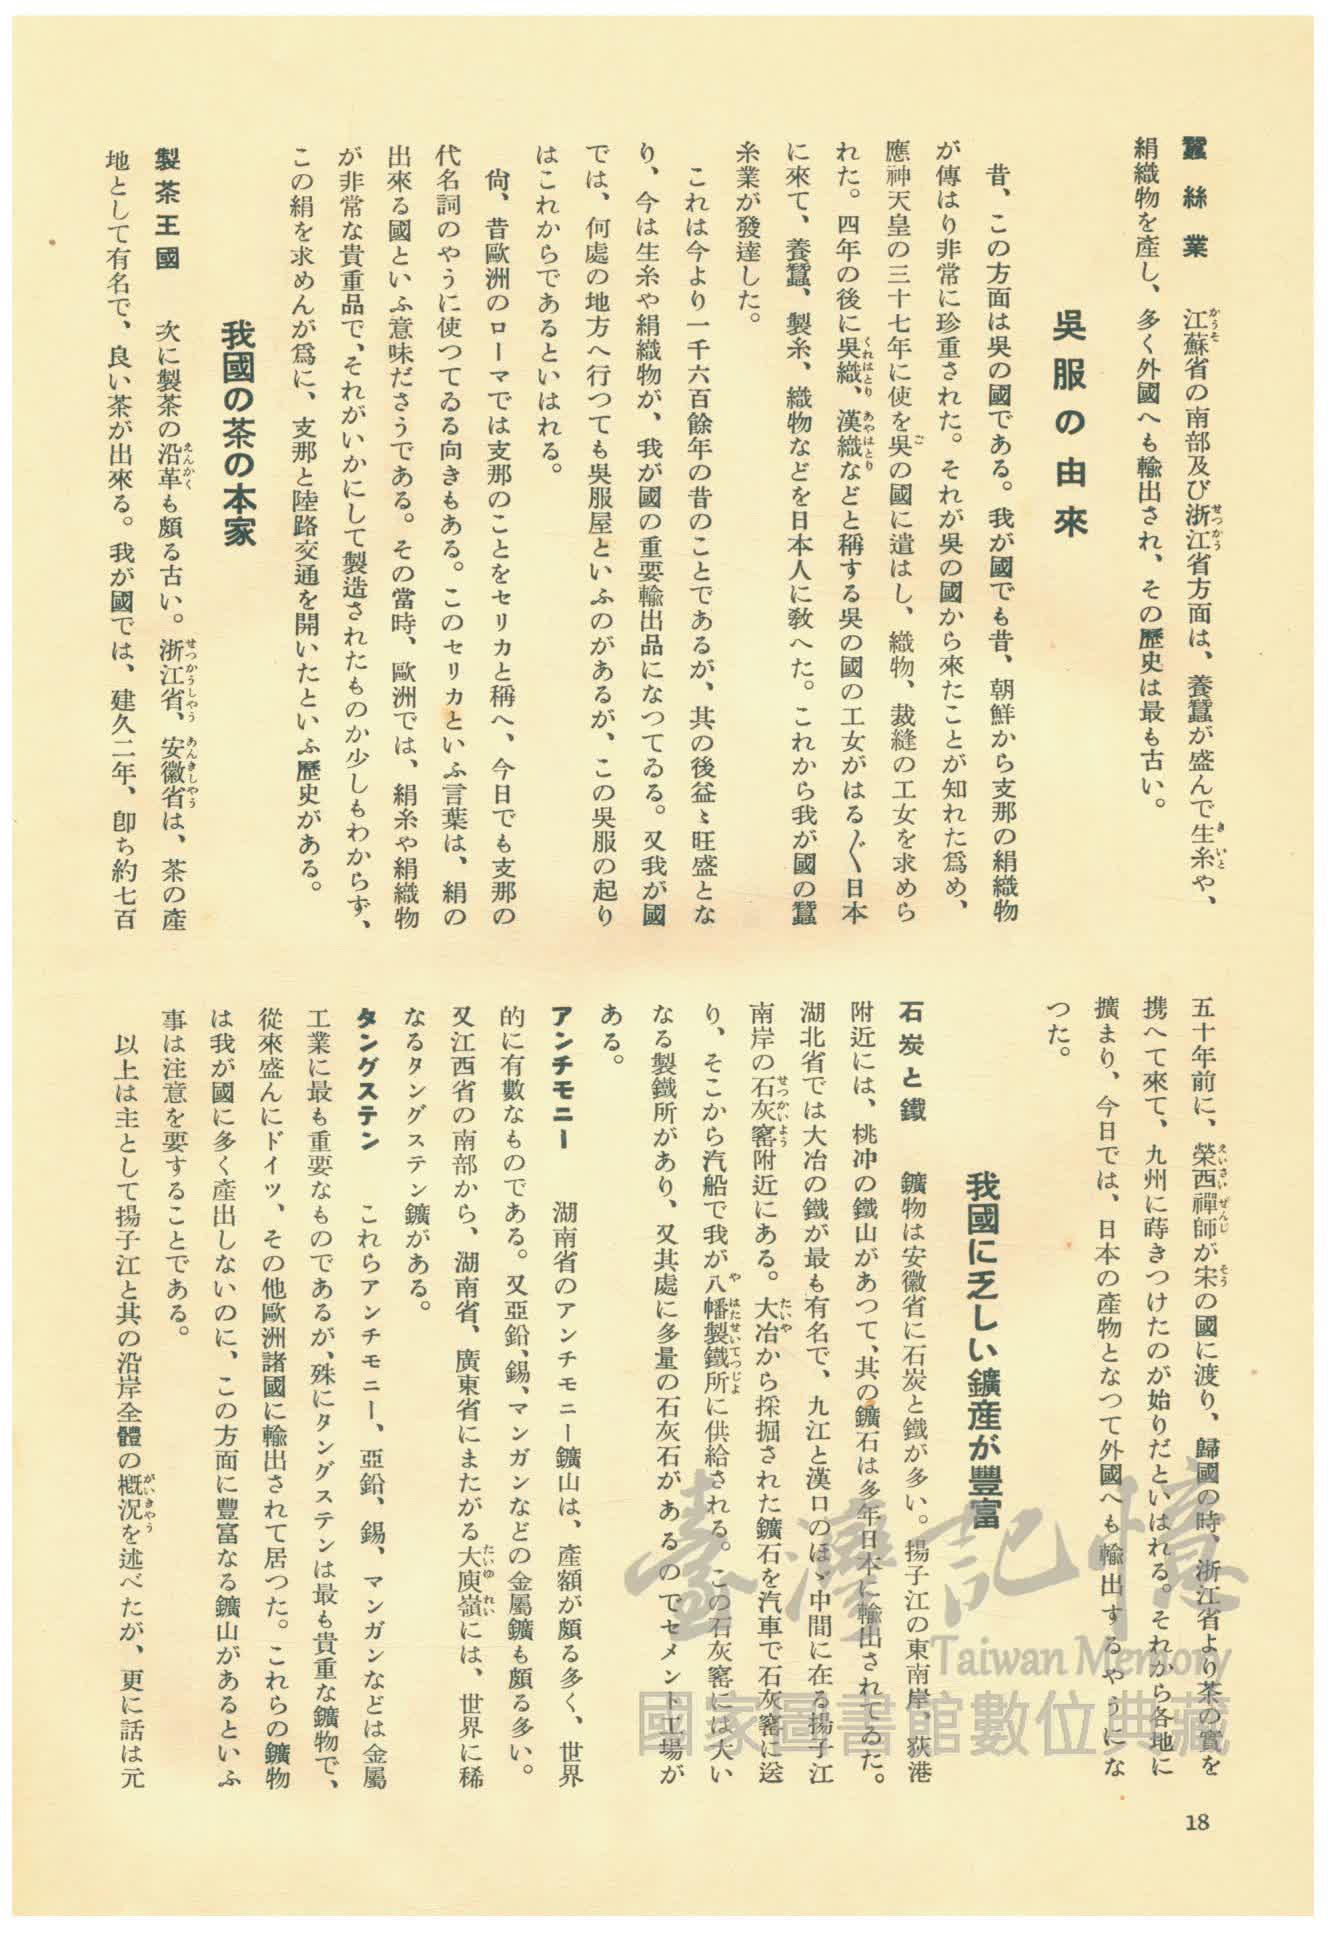 蠶絲業　江蘇省の南部及び浙江省方面は、養蠶が盛んで生糸や、
絹織物を産し、多く外國へも輸出され、その歷史は最も古い。
吳服の由來
昔、この方面は吳の國である。我が國でも昔、朝鮮から支那の絹織物
が傳はり非常に珍重された。それが吳の國から來たことが知れた爲め、
應神天皇の三十七年に使を吳の國に遣はし、織物、裁縫の工女を求めら
れた。四年の後に吳織、漢織などと稱する吳の國の工女がはる〲日本
に來て、養蠶、製糸、織物などを日本人に敎へた。これから我が國の蠶
糸業が發達した。
これは今より一千六百餘年の昔のことであるが、其の後益〻旺盛とな
り、今は生糸や絹織物が、我が國の重要輸出品になつてゐる。又我が國
では、何處の地方へ行つても吳服屋といふのがあるが、この吳服の起り
はこれからであるといはれる。
尙、昔歐洲のローマでは支那のことをセリカと稱へ、今日でも支那の
代名詞のやうに使つてゐる向きもある。このセリカといふ言葉は、絹の
出來る國といふ意味ださうである。その當時、歐洲では、絹糸や絹織物
が非常な貴重品で、それがいかにして製造されたものか少しもわからず、
この絹を求めんが爲に、支那と陸路交通を開いたといふ歷史がある。
我國の茶の本家
製茶王國　次に製茶の沿革も頗る古い。浙江省、安徽省は、茶の產
地として有名で、良い茶が出來る。我が國では、建久二年、卽ち約七百
五十年前に、榮西禪師が宋の國に渡り、歸國の時、浙江省より茶の實を
携へて來て、九州に蒔きつけたのが始りだといはれる。それから各地に
擴まり、今日では、日本の產物となつて外國へも輸出するやうにな
つた。
我國に乏しい鑛産が豐富
石炭と鐵　鑛物は安徽省に石炭と鐵が多い。揚子江の東南岸、荻港
附近には、桃冲の鐵山があつて、其の鑛石は多年日本に輸出されてゐた。
湖北省では大冶の鐵が最も有名で、九江と漢口のほゞ中間に在る揚子江
南岸の石灰窰附近にある。大冶から採掘された鑛石を汽車で石灰窰に送
り、そこから汽船で我が八幡製鐵所に供給される。この石灰窰には大い
なる製鐵所があり、又其處に多量の石灰石があるのでセメント工場が
ある。
アンチモニー　湖南省のアンチモニー鑛山は、產額が頗る多く、世界
的に有數なものである。又亞鉛、錫、マンガンなどの金屬鑛も頗る多い。
又江西省の南部から、湖南省、廣東省にまたがる大庾嶺には、世界に稀
なるタングステン鑛がある。
タングステン　これらアンチモニー、亞鉛、錫、マンガンなどは金屬
工業に最も重要なものであるが、殊にタングステンは最も貴重な鑛物で、
從來盛んにドイツ、その他歐洲諸國に輸出されて居つた。これらの鑛物
は我が國に多く產出しないのに、この方面に豐富なる鑛山があるといふ
事は注意を要することである。
以上は主として揚子江と其の沿岸全體の概況を述べたが、更に話は元
18
臺灣記憶
Taiwan Memory
國家圖書館數位典藏